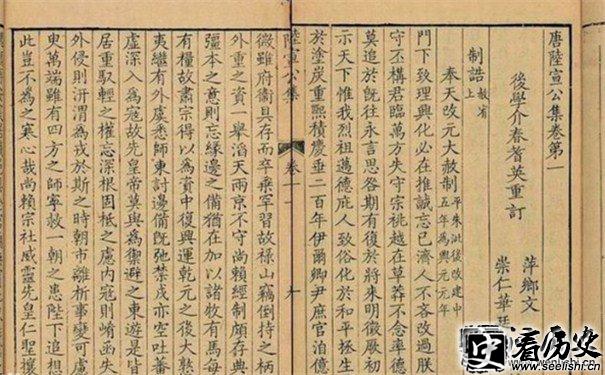 唐陸宣公集卷第一
後學介春耆英重訂
萍鄉文
崇仁華
制誥 赦宥上
奉天改元大赦制 平朱泚後改建中五年為興元元年
門下致理興化必在推誠忘己濟人不吝改過朕
守丕構君臨萬方失守宗祧越在草莽不念率德
莫追於既往永言思咎期有復於將來明徵厥初
示天下惟我烈祖邁德庇人致俗化於和平拯生
於塗炭重熙積慶垂二百年伊爾卿尹庶官洎億
陸宣公集
卷十一
十
微雖府衛具存而卒乘罕習故祿山竊倒持之柄
外重之資一舉滔天兩京不守尚賴經制頗存典
彊本之意則忘緣邊之備猶在加以諸牧有馬每
有糧故肅宗得以為資中復興運乾元之後大憝
夷繼有外虞悉師東討邊備既弛禁戎亦空吐蕃
虛深入為寇故先皇帝莫與為禦避之東遊是皆
居重馭輕之權忘深根固柢之慮內寇則崤函失
外侵則汧渭為戎於斯之時朝市離析事變可慮
臾萬端雖有四方之師寧救一朝之患陛下追想
此豈不為之寒心哉尚賴宗社威靈先皇仁聖攘
史 看历史
www.seelishi.cn